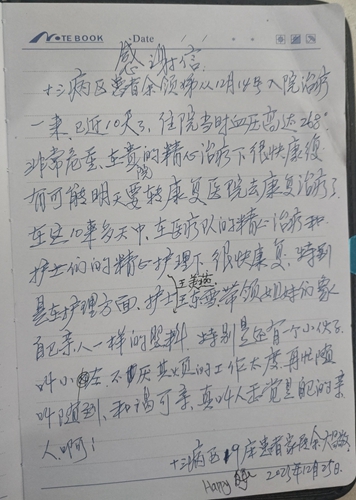 NOTE BOOK Date
感谢信
十三病区患者余领娣从12月14号入院治疗
一来,已近10天了,住院当时血压高达268
非常危重,在贵院的精心治疗下很快康复
有可能明天要转康复医院去康复治疗了
在这10来多天中,在医疗队的精心治疗和
护士们的的精心护理下很快康复,特别
是在护理方面,护士王 带领姐妹们象
自己亲人一样的照料,特别是还有一个小伙子
叫小左,不厌其烦的工作太度,再忙随
叫随到,和谒可亲,真叫人感觉是自己的亲
人啊!
十三病区19床患者家属余
Happy 2023年12月25日